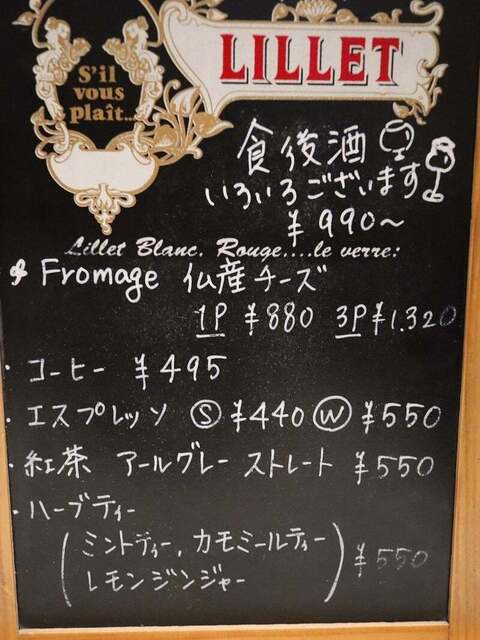 LILLET
S'il
vous
plaît...
食後酒
いろいろございます
¥990~
Lillet Blanc. Rouge....le verre:
Fromage 仏産チーズ
1P ¥880 3P ¥1.320
・コーヒー ¥495
・エスプレッソ Ⓢ ¥440 Ⓦ ¥550
・紅茶 アールグレー ストレート ¥550
・ハーブティー
(ミントティー, カモミールティー
レモンジンジャー) ¥550